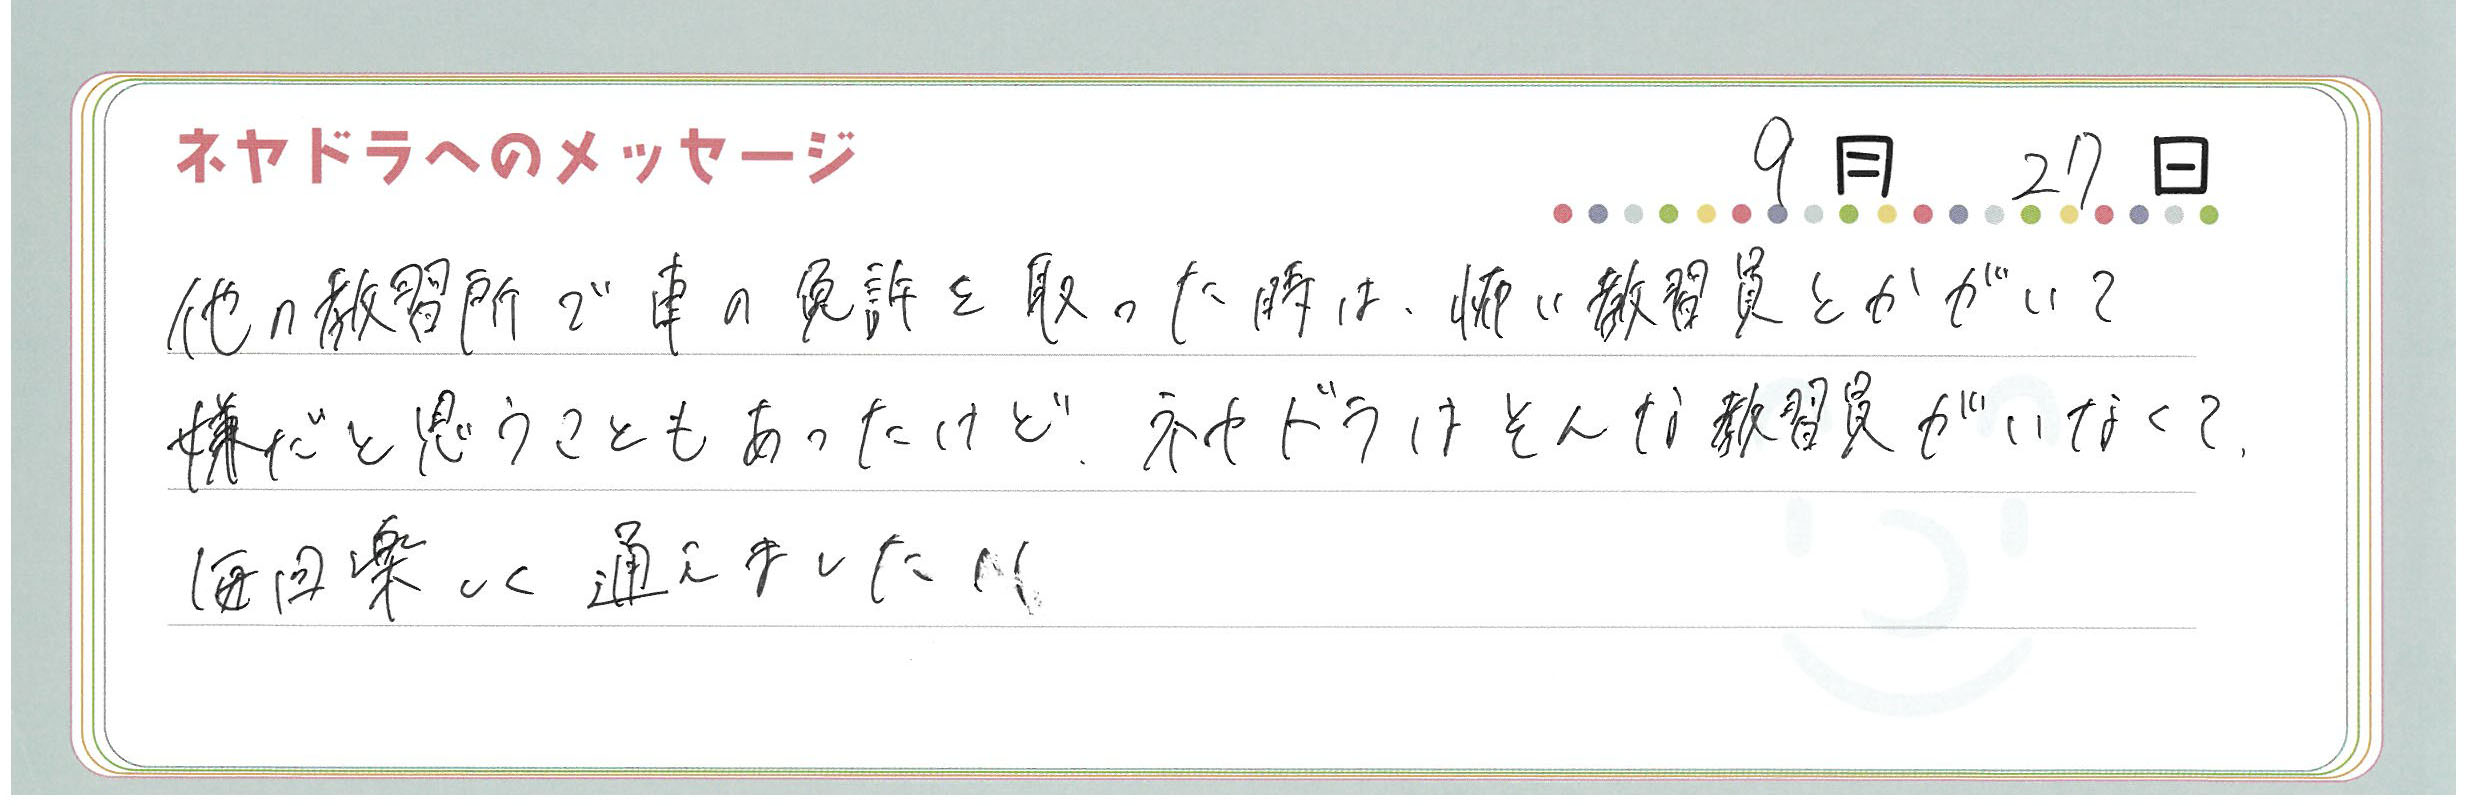 ネヤドラへのメッセージ
9月 27日
他の教習所で車の免許を取った時は、怖い教習員とかがいて
嫌だと思うこともあったけど、ネヤドラはそんな教習員がいなくて、
毎回楽しく通えました